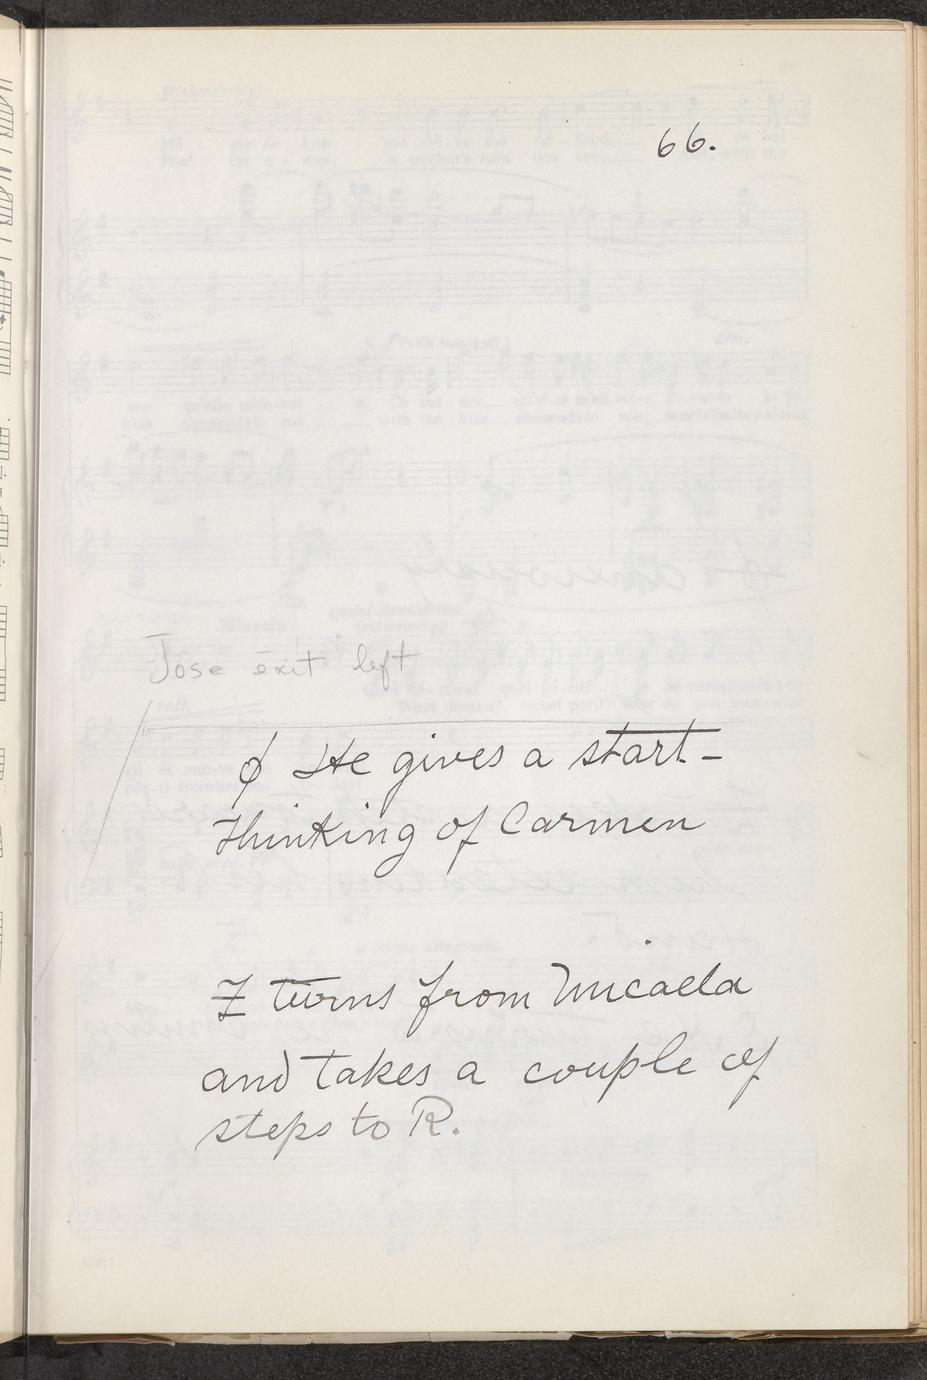 66.
Jose exit left
ϕ He gives a start –
thinking of Carmen
Z turns from Micaela
and takes a couple of
steps to R.